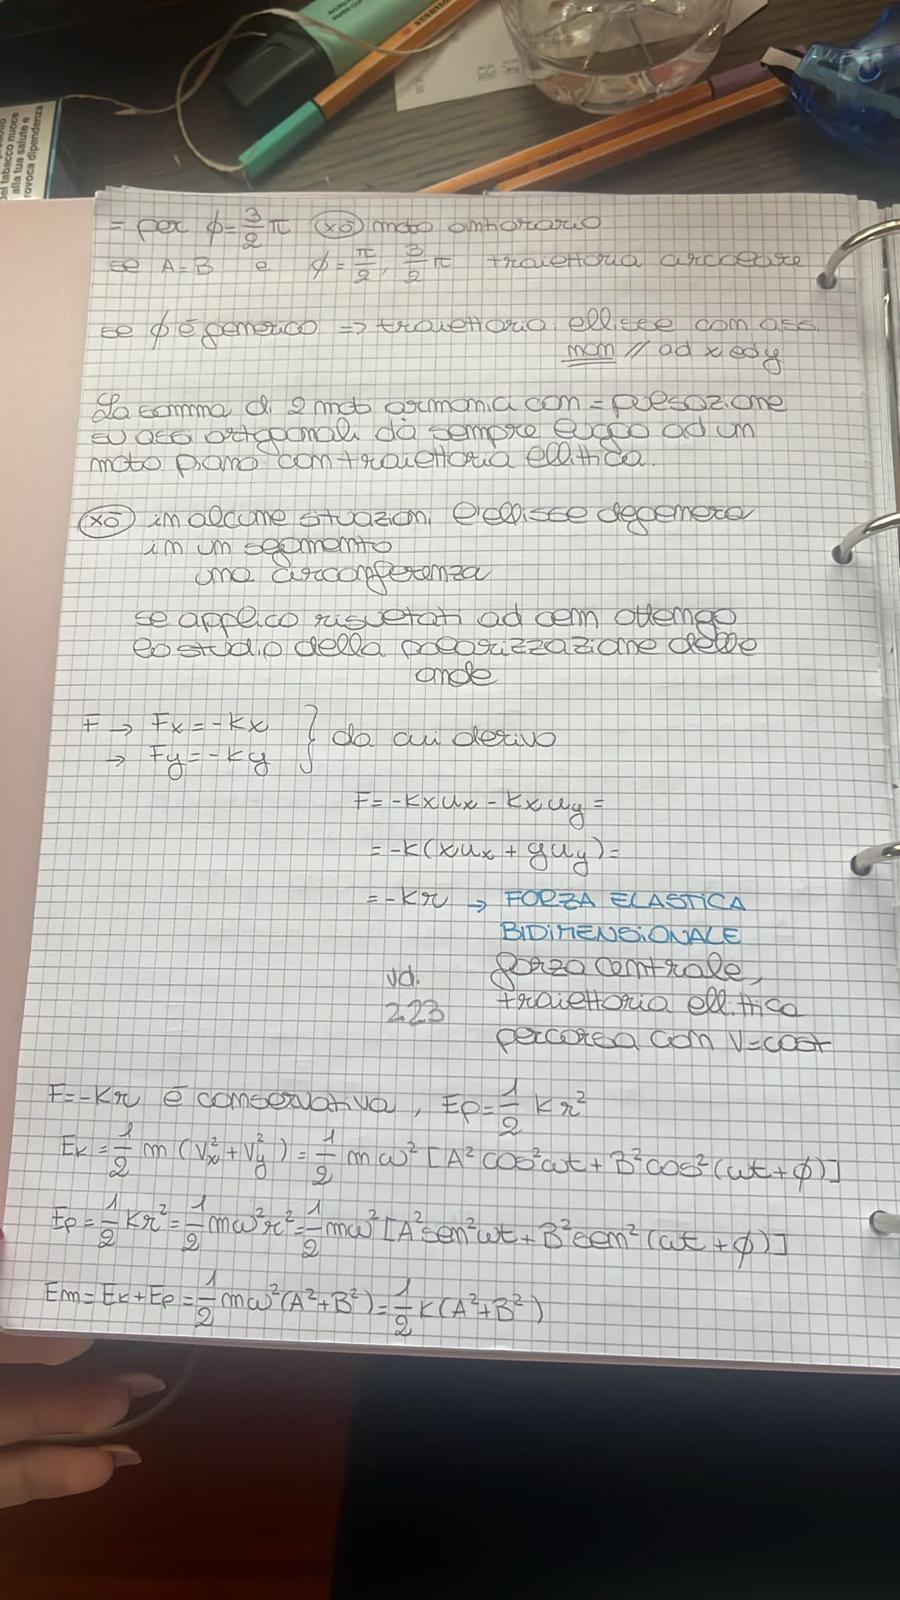 del tabacco nuoce
alla tua salute e
provoca dipendenza
= per ϕ=3/2 π (xò) moto antiorario
se A=B e ϕ=π/2, 3/2 π traiettoria circolare
se ϕ è generico => traiettoria ellisse con assi
non // ad x ed y
La somma di 2 moti armonici con = pulsazione
su assi ortogonali dà sempre luogo ad un
moto piano con traiettoria ellittica.
(xò) in alcune situazioni l'ellisse degenera
in un segmento
una circonferenza
se applico risultati ad cem ottengo
lo studio della polarizzazione delle
onde
F → Fx=-kx
→ Fy=-ky } da cui derivo
F=-kxux - kxuy=
=-k(xux + yuy)=
=-kr → FORZA ELASTICA
BIDIMENSIONALE
vd. forza centrale,
2.23 traiettoria ellittica
percorsa con v=cost
F=-kr è conservativa, Ep=1/2 kr²
Ek=1/2 m (Vx²+Vy²)=1/2 mω² [A²cos²ωt+B²cos²(ωt+ϕ)]
Ep=1/2 kr²=1/2 mω²r²=1/2 mω²[A²sen²ωt+B²sen²(ωt+ϕ)]
Em=Ek+Ep=1/2 mω²(A²+B²)=1/2 k(A²+B²)